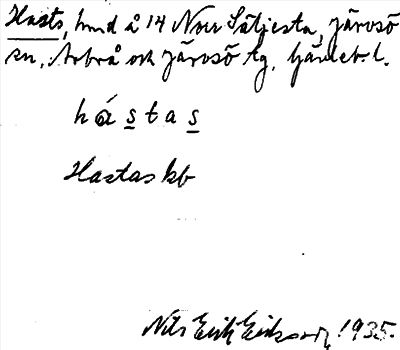 Hasts, hmd å 14 Norr Sätjesta, Järvsö
sn, Arbrå och Järvsö tg, Gävleb. l.
hástas
Hastas kb
Nils Erik Eriksson, 1935.